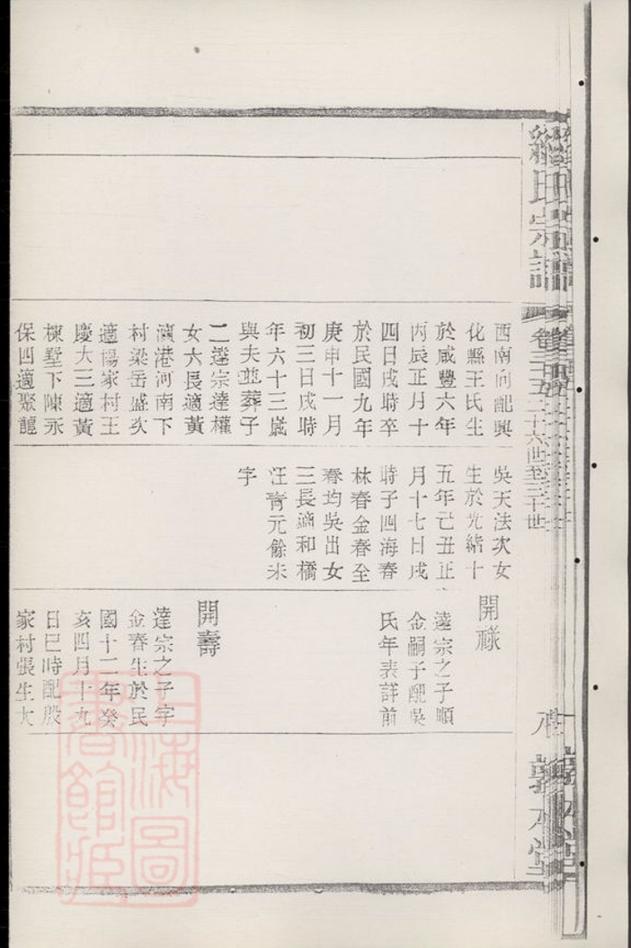 西南向配興
化縣王氏生
於咸豐六年
丙辰正月十
四日戌時卒
於民國九年
庚申十一月
初三日戌時
年六十三歲
與夫並葬子
二達宗達權
女六長適黃
滇港河南下
村梁岳盛次
適楊家村王
慶大三適黃
棟墅下陳永
保四適聚龍
吳天法次女
生於光緒十
五年己丑正
月十七日戌
時子四海春
林春金春全
春均吳出女
三長適和橋
汪育元餘未
字
開祿
達宗之子順
金嗣子配吳
氏年表詳前
開壽
達宗之子字
金春生於民
國十二年癸
亥四月十九
日巳時配殷
家村張生大
二十六世至三十世
敦本堂
上海圖
書館藏